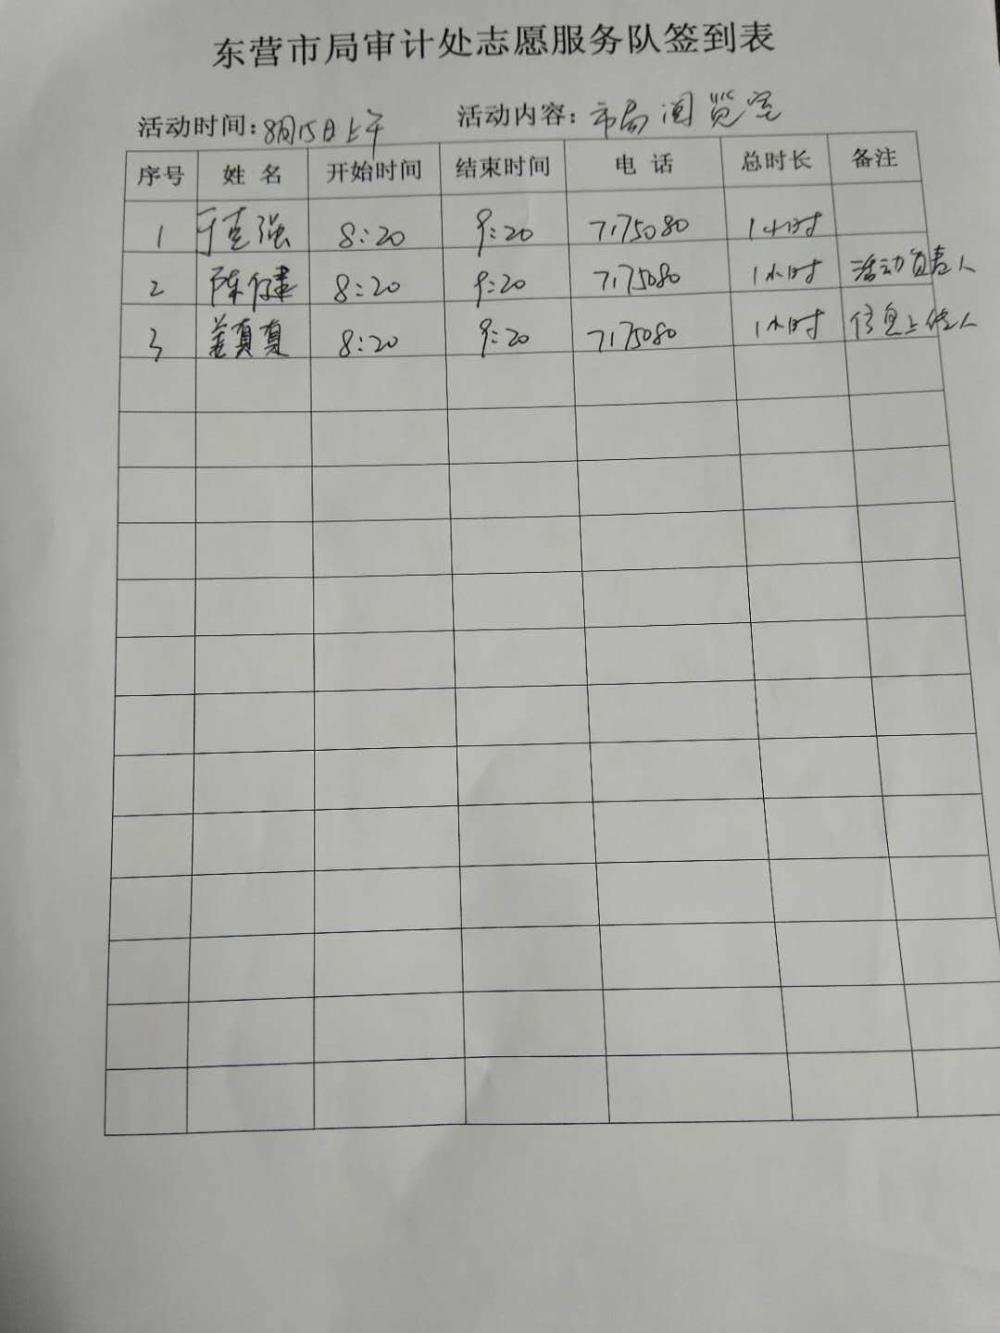 东营市局审计处志愿服务队签到表
活动时间:8月15日上午 活动内容:市局阅览室
序号 姓名 开始时间 结束时间 电话 总时长 备注
1 于克强 8:20 9:20 7175080 1小时
2 陈仔建 8:20 9:20 7175080 1小时 活动负责人
3 姜真真 8:20 9:20 7175080 1小时 信息上传人